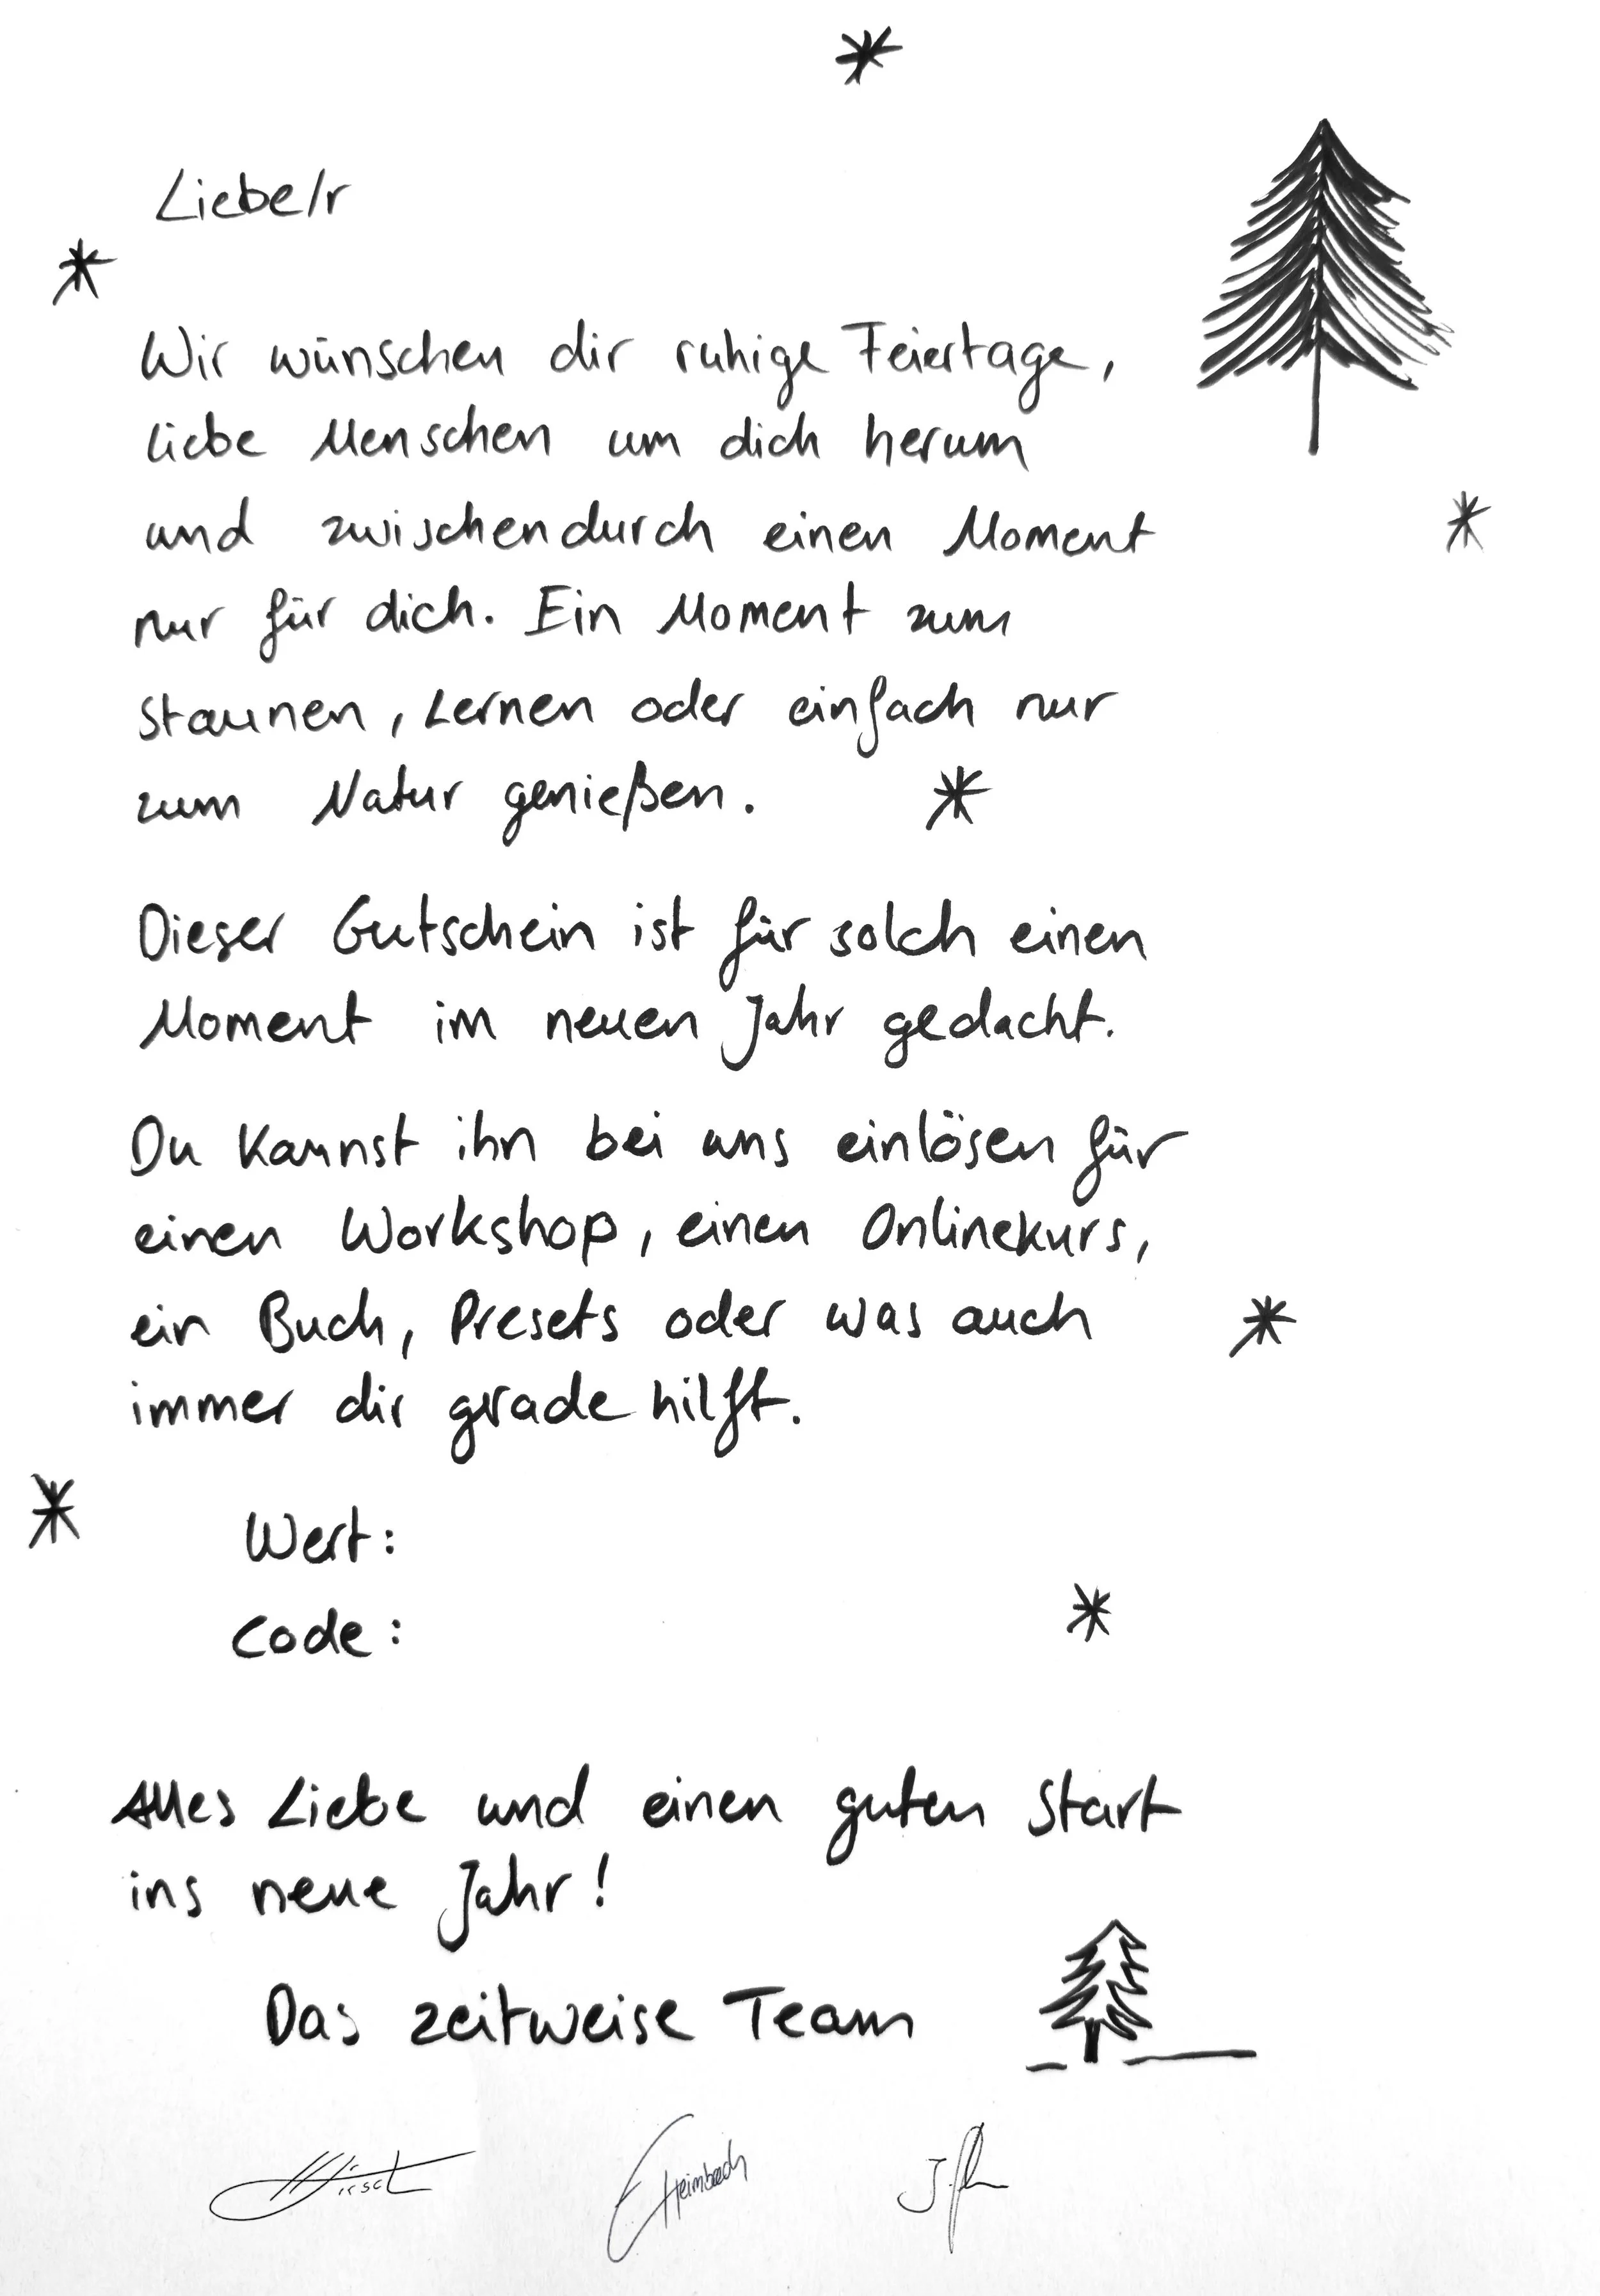 Liebe/r
Wir wünschen dir ruhige Feiertage,
liebe Menschen um dich herum
und zwischendurch einen Moment
nur für dich. Ein Moment zum
Staunen, Lernen oder einfach nur
zum Natur genießen.
Dieser Gutschein ist für solch einen
Moment im neuen Jahr gedacht.
Du kannst ihn bei uns einlösen für
einen Workshop, einen Onlinekurs,
ein Buch, Presets oder was auch
immer dir gerade hilft.
Wert:
Code:
Alles Liebe und einen guten Start
ins neue Jahr!
Das zeitweise Team
Heimbach